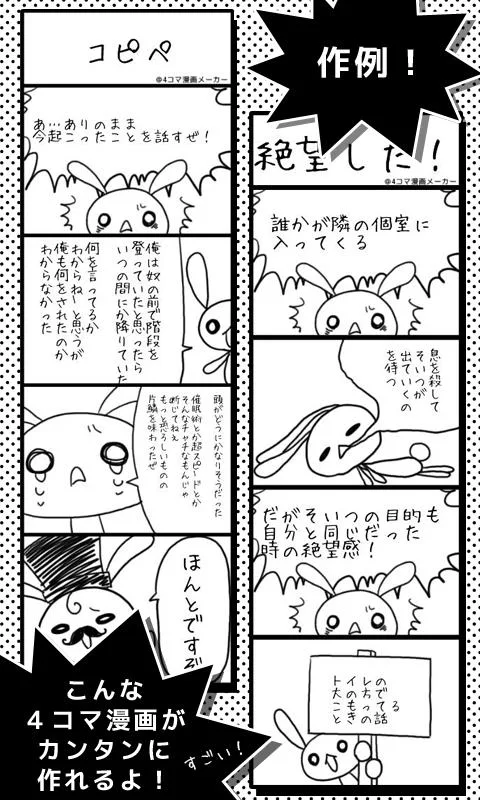 コピペ
@4コマ漫画メーカー
あ…ありのまま
今起こったことを話すぜ！
俺は奴の前で階段を
登っていたと思ったら
いつの間にか降りていた
何を言ってるか
わからねーと思うが
俺も何をされたのか
わからなかった
頭がどうにかなりそうだった
催眠術とか超スピードとか
そんなチャチなもんじゃ
断じてねえ
もっと恐ろしいものの
片鱗を味わったぜ
ほんとですぞ
作例！
絶望した！
@4コマ漫画メーカー
誰かが隣の個室に
入ってくる
息を殺して
そいつが
出ていくの
を待つ
だがそいつの目的も
自分と同じだった
時の絶望感！
トイレの
大の方で
こもってる
ときの話
こんな
４コマ漫画が
カンタンに
作れるよ！
すごい！